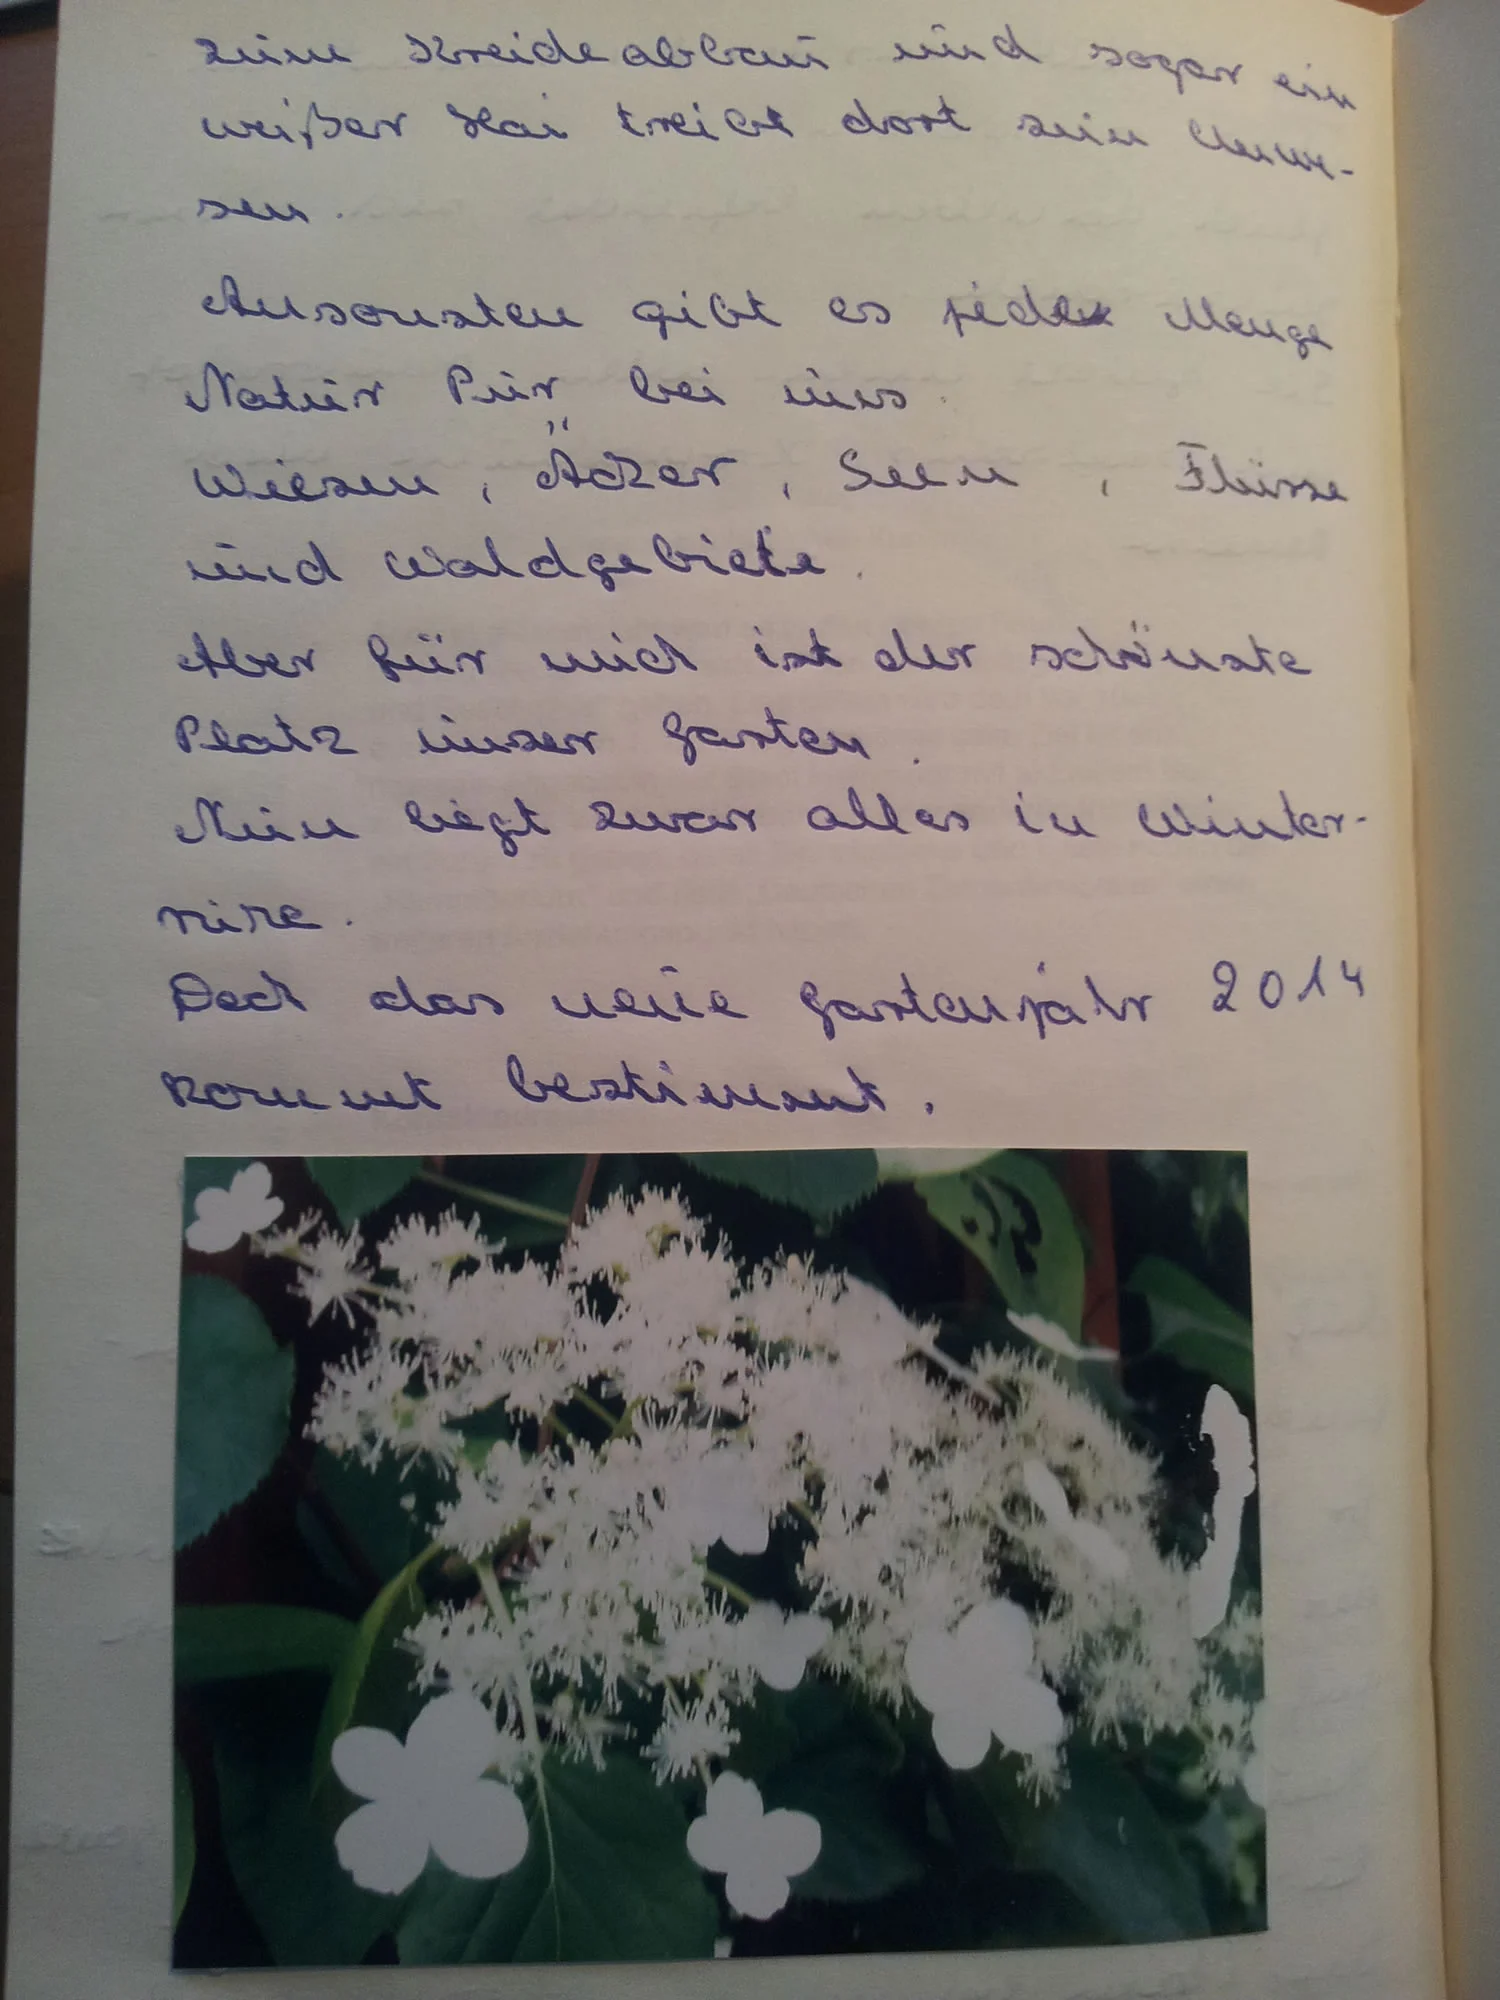 zum Kreideabbau und sogar ein
weißer Hai treibt dort sein Unwe-
sen.
Ansonsten gibt es jede Menge
Natur Pur bei uns.
Wiesen, Äcker, Seen, Flüsse
und Waldgebiete.
Aber für mich ist der schönste
Platz unser Garten.
Nun liegt zwar alles in Winter-
ruhe.
Doch das neue Gartenjahr 2014
kommt bestimmt.